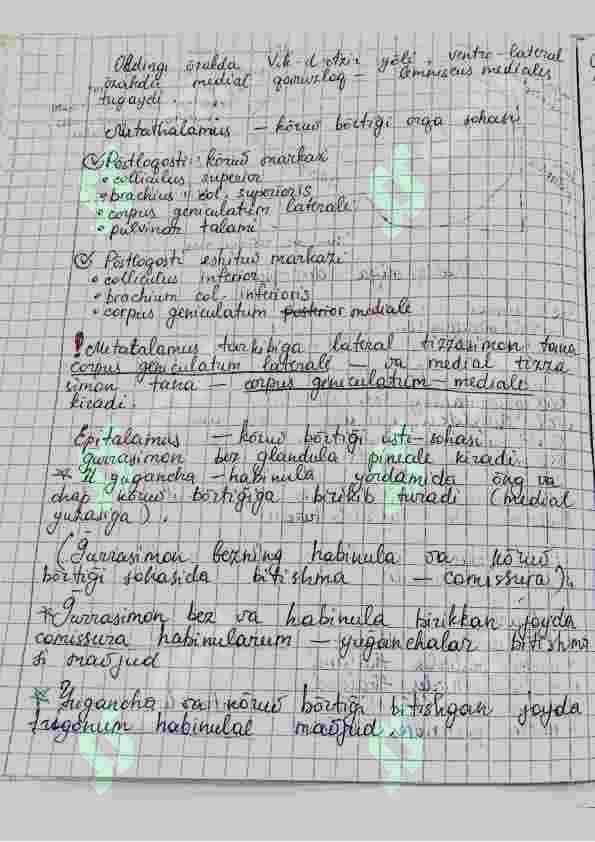 Oldingi özakda V.k d otzir yöli, ventro-lateral
özakda medial qovuzloq – lemniscus medialis
tugaydi.
Metathalamus – köruv börtiği orqa sohasi
Pöstlogosti köruv markazi
• colliculus superior
• brachius col. superioris
• corpus geniculatum laterale
• pulvinar talami
Pöstlogosti eshituv markazi
• colliculus inferior
• brachium col. inferioris
• corpus geniculatum posterior mediale
! Metatalamus tarkibiga lateral tizzasimon tana
corpus geniculatum laterale – va medial tizza
simon tana – corpus geniculatum mediale
kiradi.
Epitalamus – köruv börtiği usti sohasi
ğurrasimon bez glandula pineale kiradi.
* U yugancha – habinula yordamida öng va
chap köruv börtiğiga birikib turadi (medial
yuzasiga).
(Ğurrasimon bezning habinula va köruv
börtiği sohasida bitishma – comissura).
* Ğurrasimon bez va habinula birikkan joyda
comissura habinularum – yuganchalar bitishma
si mavjud
* Yugancha va köruv börtiği bitishgan joyda
trigonum habinulae mavjud.